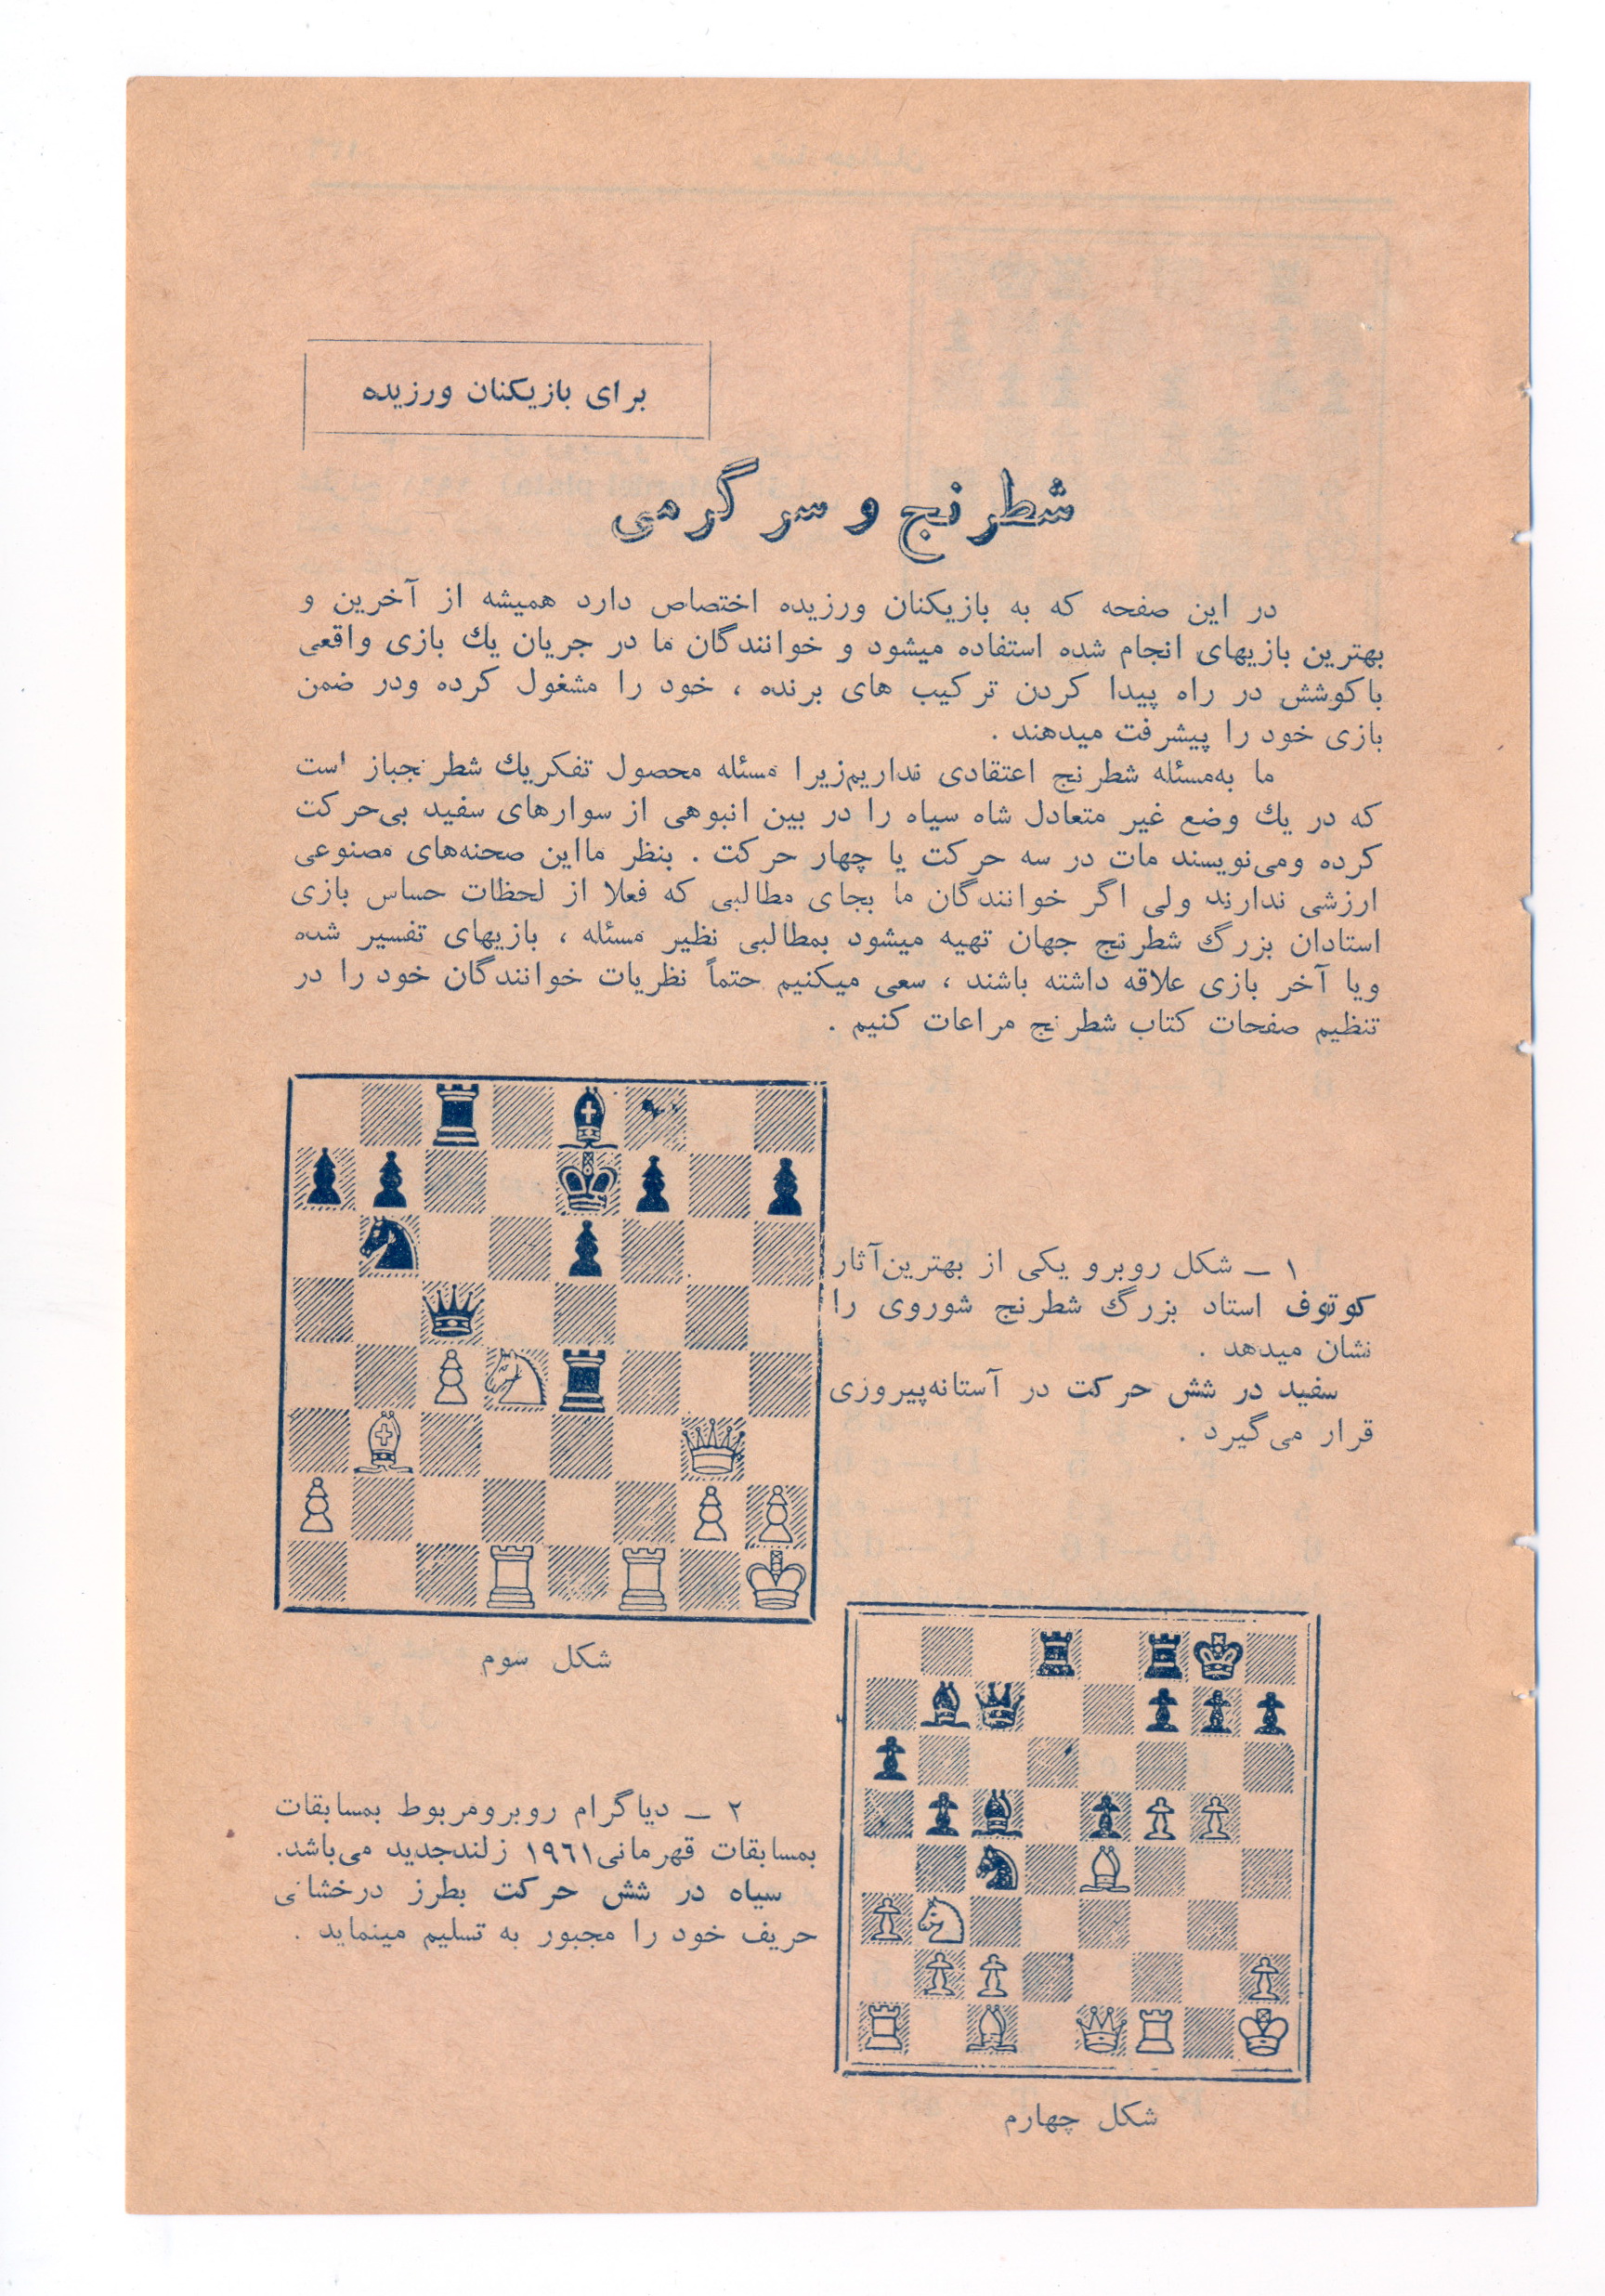 برای بازیکنان ورزیده
شطرنج و سرگرمی
در این صفحه که به بازیکنان ورزیده اختصاص دارد همیشه از آخرین و
بهترین بازیهای انجام شده استفاده میشود و خوانندگان ما در جریان یك بازی واقعی
باکوشش در راه پیدا کردن ترکیب های برنده ، خود را مشغول کرده ودر ضمن
بازی خود را پیشرفت میدهند .
ما به‌مسئله شطرنج اعتقادی نداریم‌زیرا مسئله محصول تفکریك شطرنجباز است
که در یك وضع غیر متعادل شاه سیاه را در بین انبوهی از سوارهای سفید بی‌حرکت
کرده ومی‌نویسند مات در سه حرکت یا چهار حرکت . بنظر مااین صحنه‌های مصنوعی
ارزشی ندارند ولی اگر خوانندگان ما بجای مطالبی که فعلا از لحظات حساس بازی
استادان بزرگ شطرنج جهان تهیه میشود بمطالبی نظیر مسئله ، بازیهای تفسیر شده
ویا آخر بازی علاقه داشته باشند ، سعی میکنیم حتماً نظریات خوانندگان خود را در
تنظیم صفحات کتاب شطرنج مراعات کنیم .
۱ ـ شکل روبرو یکی از بهترین‌آثار
کوتوف استاد بزرگ شطرنج شوروی را
نشان میدهد .
سفید در شش حرکت در آستانه‌پیروزی
قرار می‌گیرد .
شکل سوم
۲ ـ دیاگرام روبرومربوط بمسابقات
بمسابقات قهرمانی۱۹۶۱ زلندجدید می‌باشد.
سیاه در شش حرکت بطرز درخشانی
حریف خود را مجبور به تسلیم مینماید .
شکل چهارم